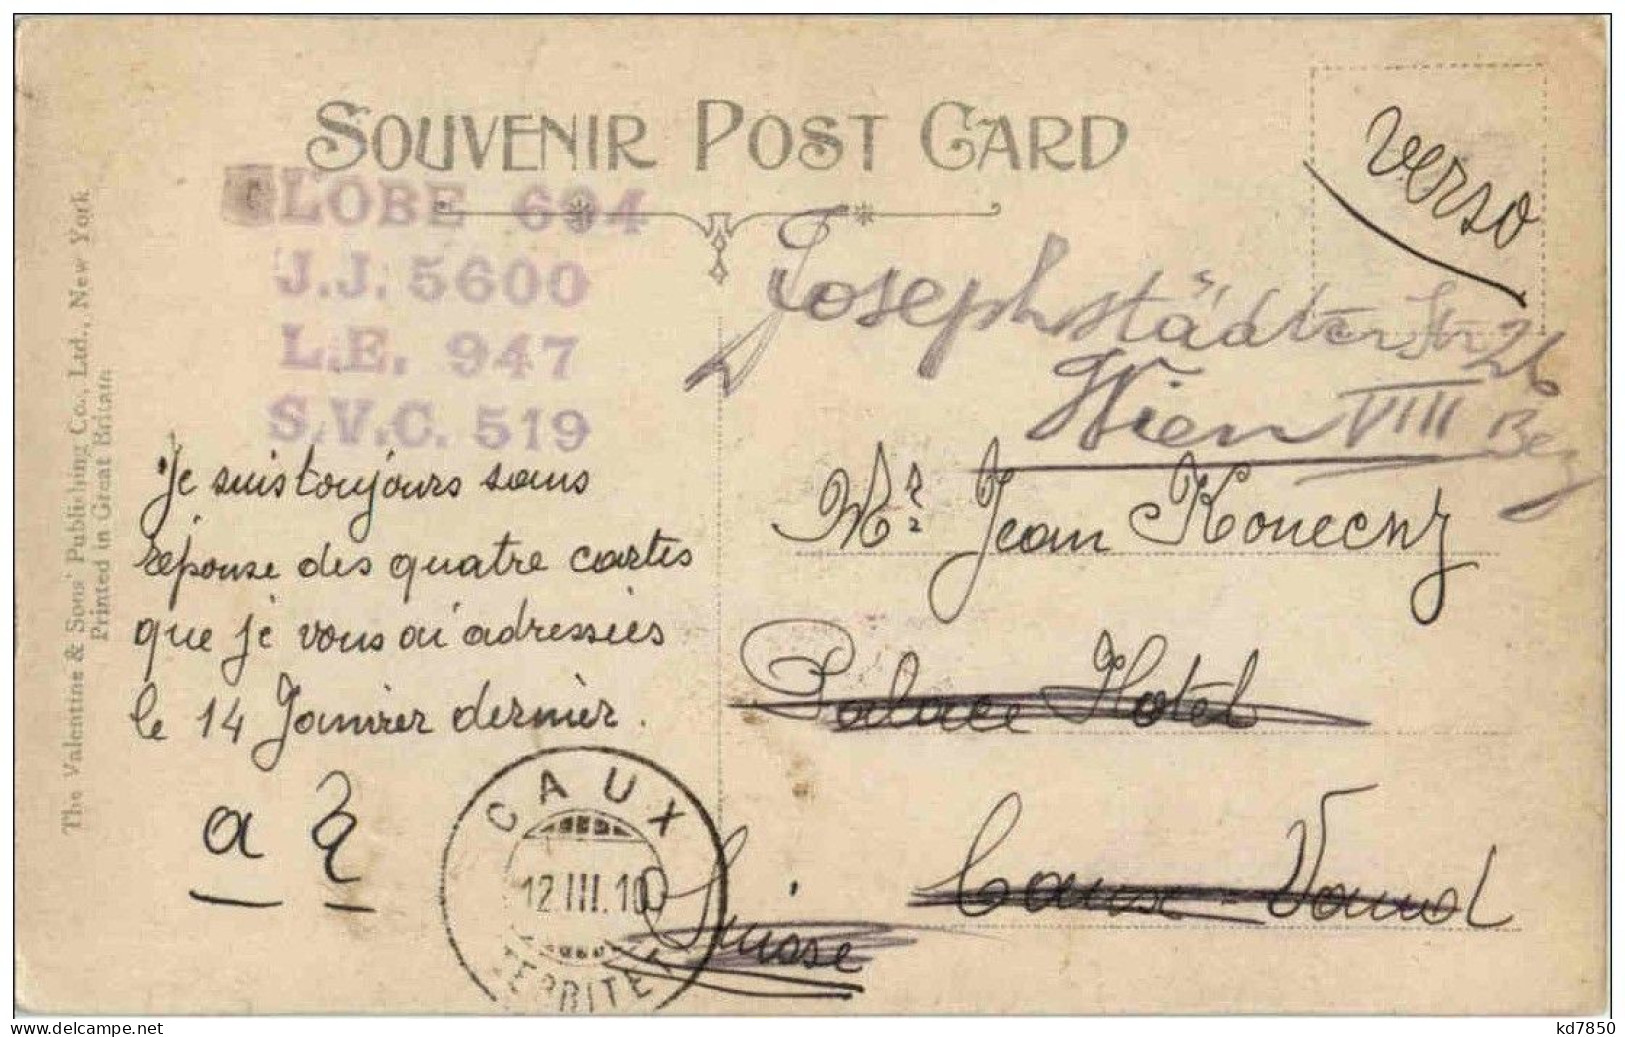 SOUVENIR POST CARD
verso
GLOBE 694
J.J. 5600
L.E. 947
S.V.C. 519
Josephstädter Str 26
Wien VIII Bez
Je suis toujours sans
réponse des quatre cartes
que je vous ai adressées
le 14 Janvier dernier.
Mr Jean Konecny
Palace Hotel
Caux-Vaud
Suisse
CAUX
12 III. 10
TERRITET
The Valentine & Sons' Publishing Co., Ltd., New York
Printed in Great Britain
www.delcampe.net
kd7850